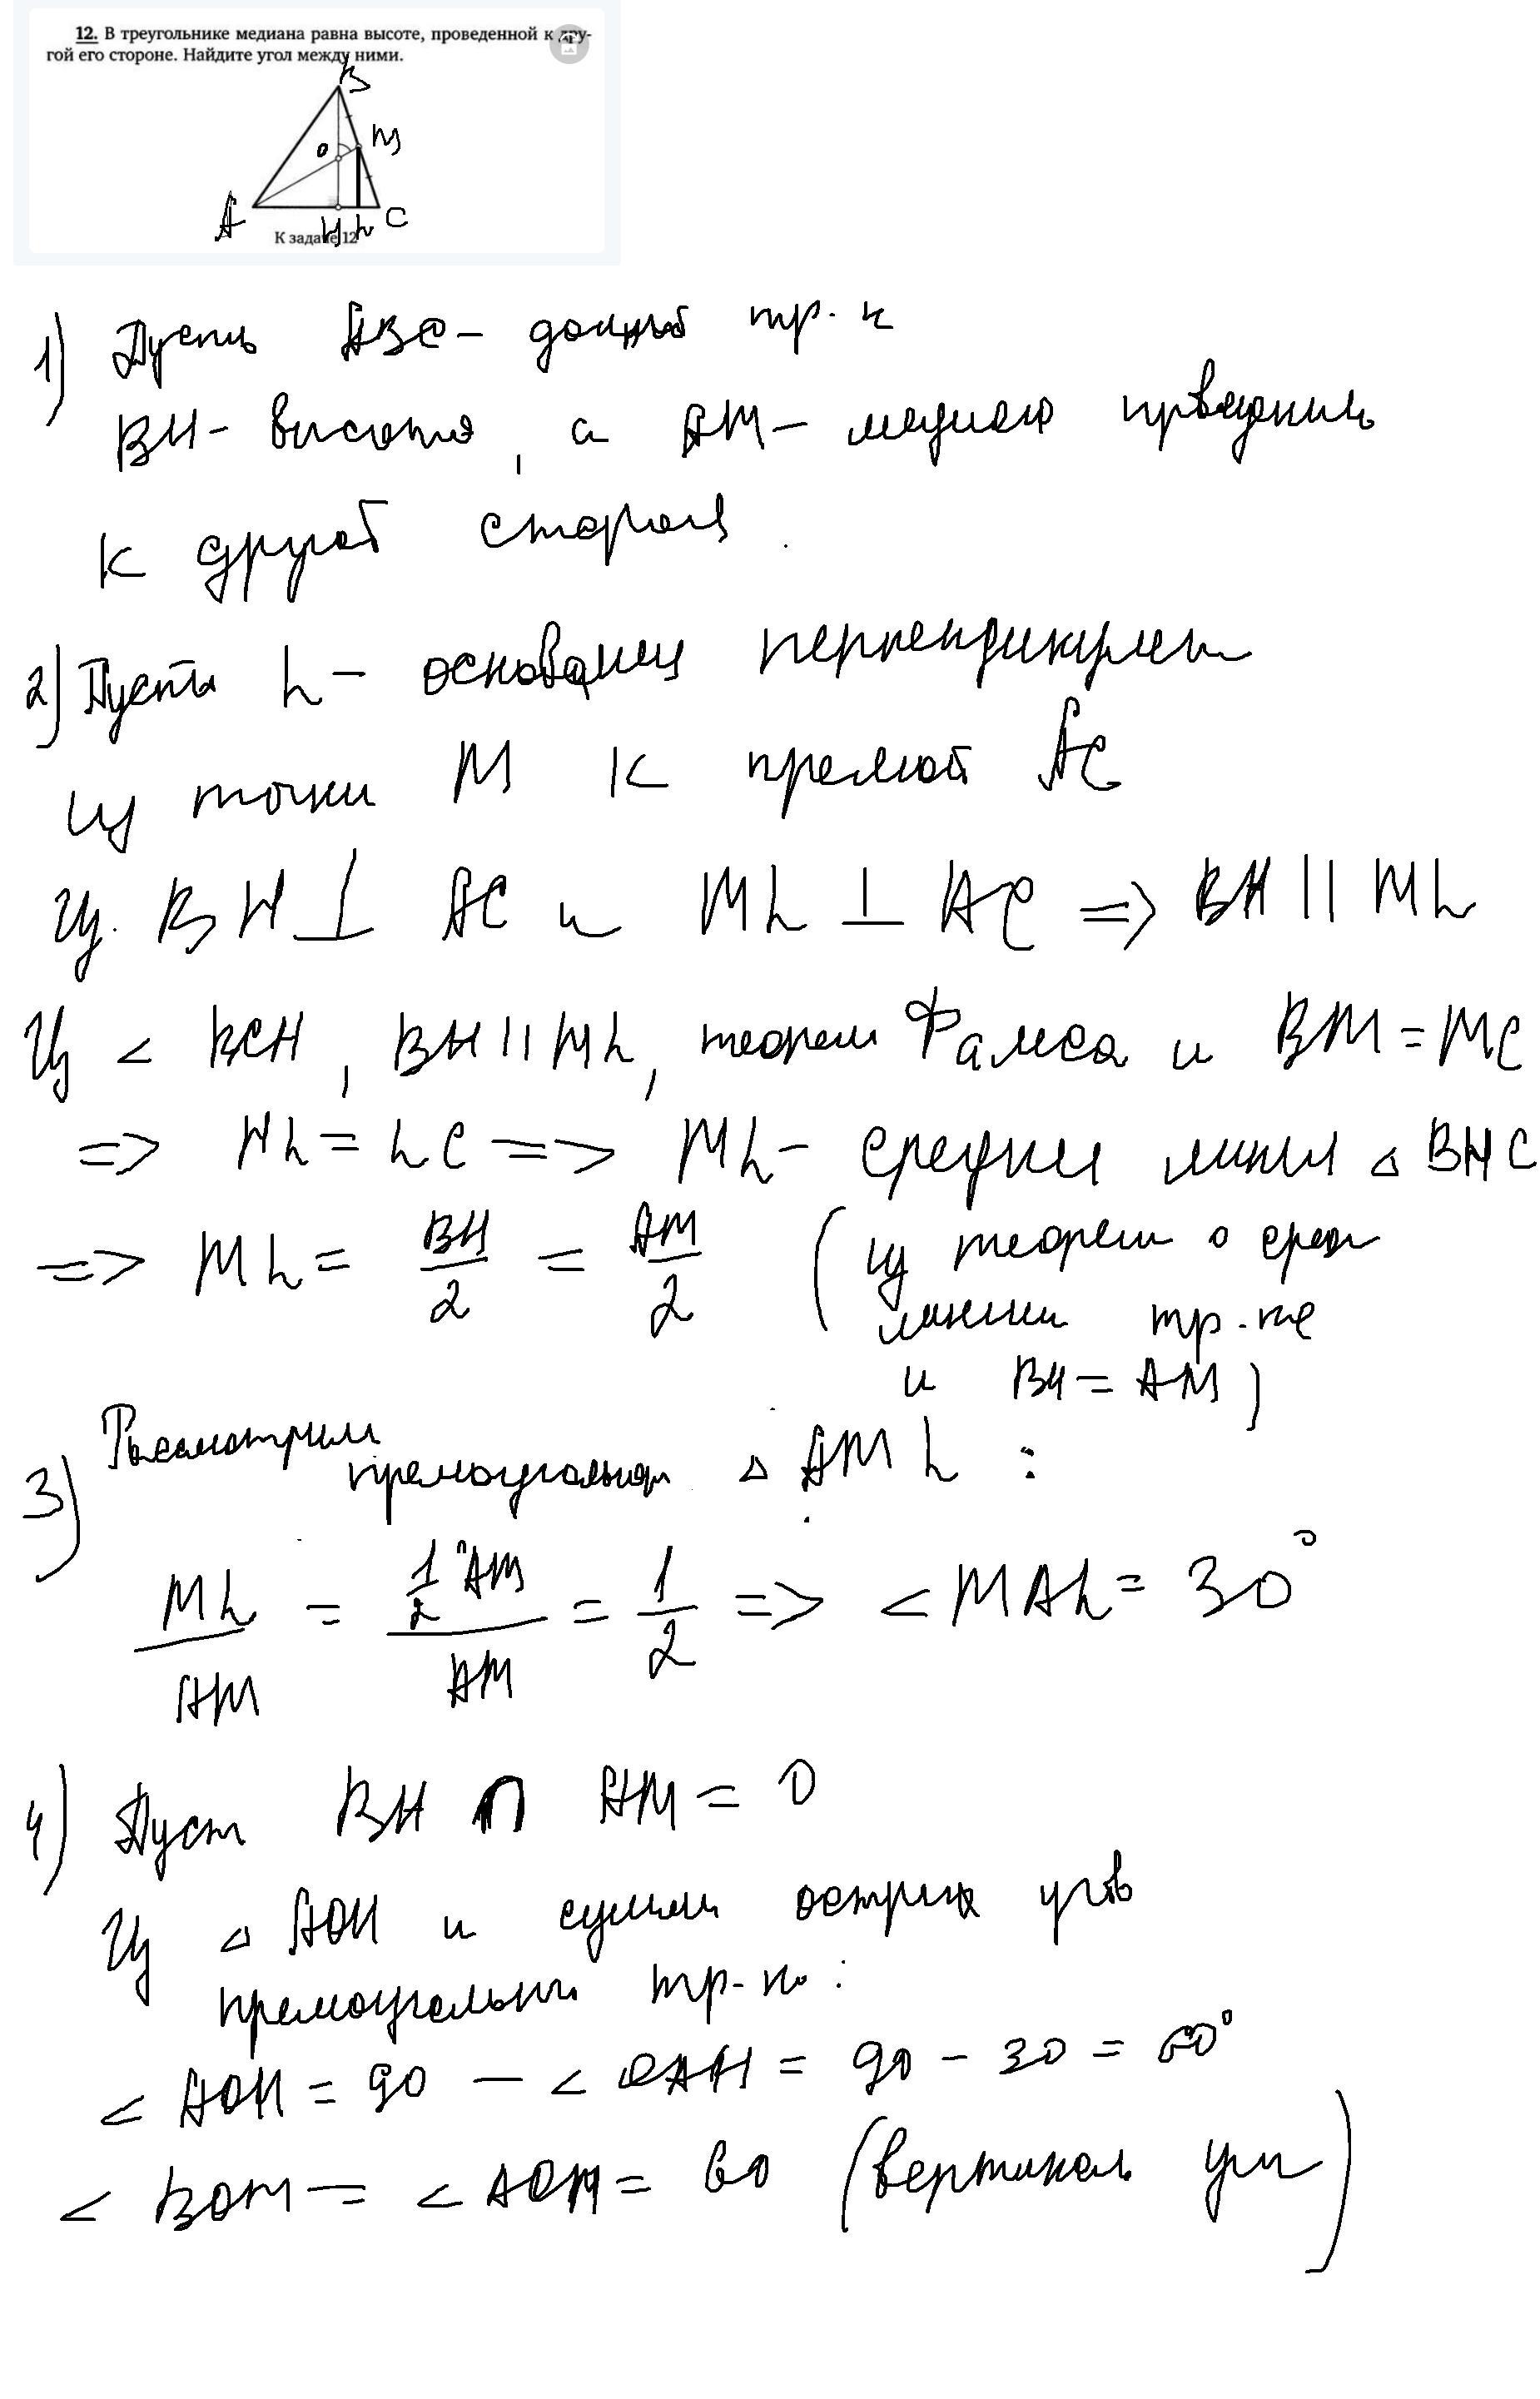 12. В треугольнике медиана равна высоте, проведенной к дру-
гой его стороне. Найдите угол между ними.
B
O M
A H L C
К задаче 12
1) Пусть ABC - данный тр. к
BH - высота, а AM - медиана
к другой стороне.
2) Пусть L - основание
из точки M к прямой AC
Из BH ⊥ AC и ML ⊥ AC => BH || ML
Из < BCH, BH || ML, теорем Фалеса и BM = MC
=> HL = LC => ML - средняя линия △ BHC
=> ML = BH/2 = AM/2 (из теорем о сред
линии тр-ка
и BH = AM)
3) Рассмотрим
△ AML :
ML/AM = 1/2 AM/AM = 1/2 => < MAL = 30°
4) Пуст BH ∩ AM = O
Из △ AOH и суммы острых
тр-к :
< AOH = 90 - < OAH = 90 - 30 = 60°
< BOM = < AOH = 60 (вертикал )